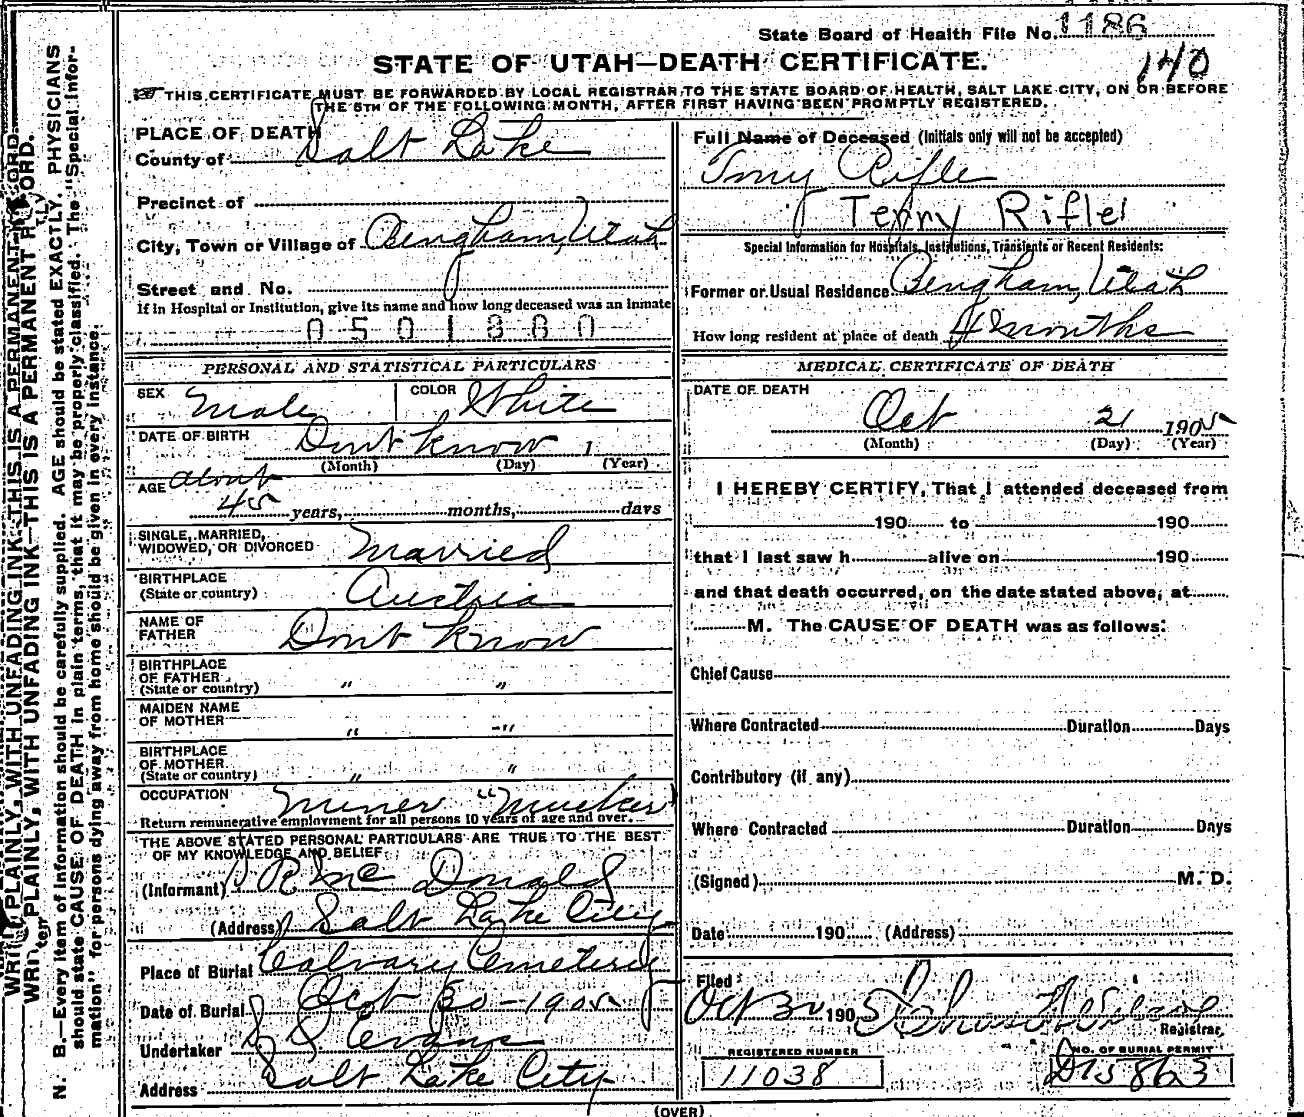 State Board of Health File No. 1186
140
STATE OF UTAH—DEATH CERTIFICATE.
THIS CERTIFICATE MUST BE FORWARDED BY LOCAL REGISTRAR TO THE STATE BOARD OF HEALTH, SALT LAKE CITY, ON OR BEFORE
THE 5TH OF THE FOLLOWING MONTH, AFTER FIRST HAVING BEEN PROMPTLY REGISTERED.
PLACE OF DEATH
County of Salt Lake
Precinct of
City, Town or Village of Bingham, Utah
Street and No.
If in Hospital or Institution, give its name and how long deceased was an Inmate
0501880
PERSONAL AND STATISTICAL PARTICULARS
SEX Male COLOR White
DATE OF BIRTH Dont know 1
(Month) (Day) (Year)
AGE about
45 years, months, days
SINGLE, MARRIED,
WIDOWED, OR DIVORCED Married
BIRTHPLACE
(State or country) Austria
NAME OF
FATHER Dont know
BIRTHPLACE
OF FATHER
(State or country) " "
MAIDEN NAME
OF MOTHER " "
BIRTHPLACE
OF MOTHER
(State or country) " "
OCCUPATION Miner "Mucker"
Return remunerative employment for all persons 10 years of age and over.
THE ABOVE STATED PERSONAL PARTICULARS ARE TRUE TO THE BEST
OF MY KNOWLEDGE AND BELIEF
(Informant) Mc Donald
(Address) Salt Lake City
Place of Burial Calvary Cemetery
Date of Burial Oct 30-1905
Undertaker Evans
Address Salt Lake City
Full Name of Deceased (Initials only will not be accepted)
Tony Rifle
Terry Rifle
Special Information for Hospitals, Institutions, Transients or Recent Residents:
Former or Usual Residence Bingham, Utah
How long resident at place of death 4 months
MEDICAL CERTIFICATE OF DEATH
DATE OF DEATH
Oct 21 1905
(Month) (Day) (Year)
I HEREBY CERTIFY, That I attended deceased from
190 to 190
that I last saw h alive on 190
and that death occurred, on the date stated above, at
M. The CAUSE OF DEATH was as follows:
Chief Cause
Where Contracted Duration Days
Contributory (if any)
Where Contracted Duration Days
(Signed) M. D.
Date 190 (Address)
Filed
Oct 30 1905
Registrar,
REGISTERED NUMBER
11038
NO. OF BURIAL PERMIT
D15863
(OVER)
WRITE PLAINLY, WITH UNFADING INK—THIS IS A PERMANENT RECORD.
WRITE PLAINLY, WITH UNFADING INK—THIS IS A PERMANENT RECORD.
N. B.—Every item of information should be carefully supplied. AGE should be stated EXACTLY. PHYSICIANS
should state CAUSE OF DEATH in plain terms, that it may be properly classified. The "Special Infor-
mation" for persons dying away from home should be given in every instance.